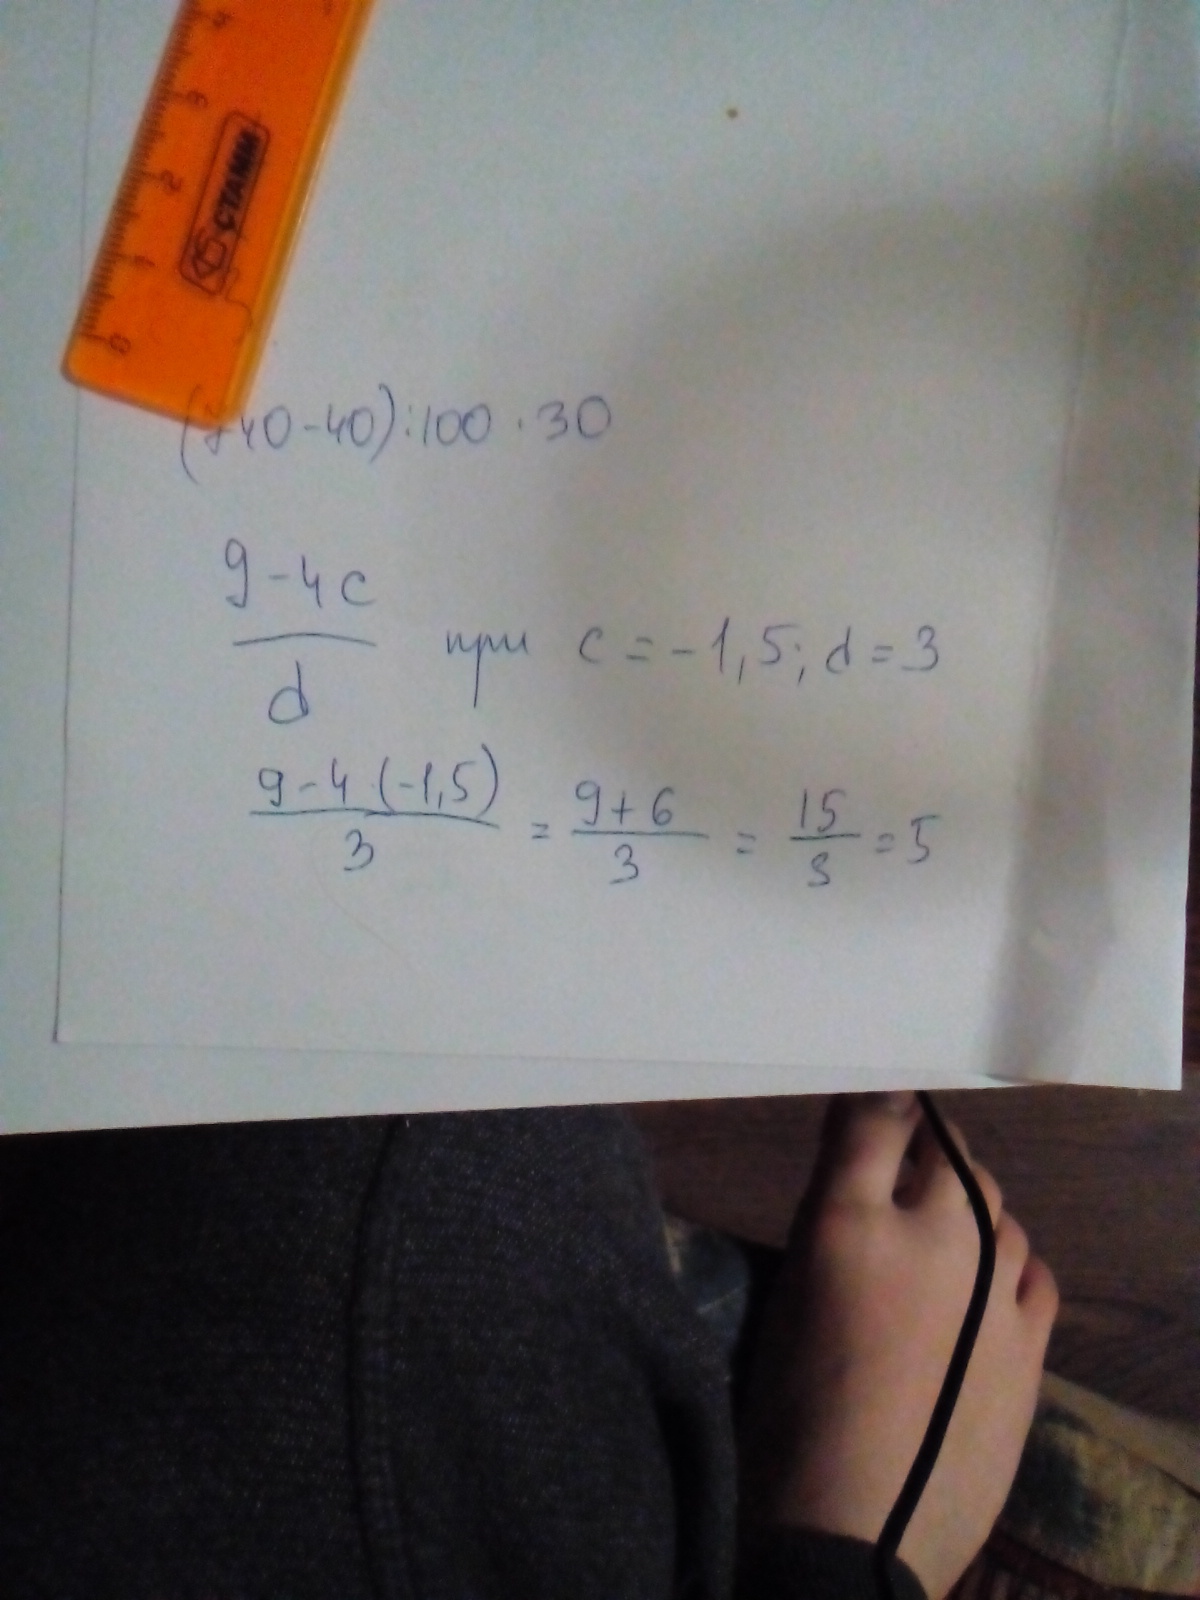 4
3
СТАММ
2
1
0
(740-40):100·30
9-4c
d
при c=-1,5; d=3
9-4·(-1,5)
3
= 9+6
3
= 15
3
=5